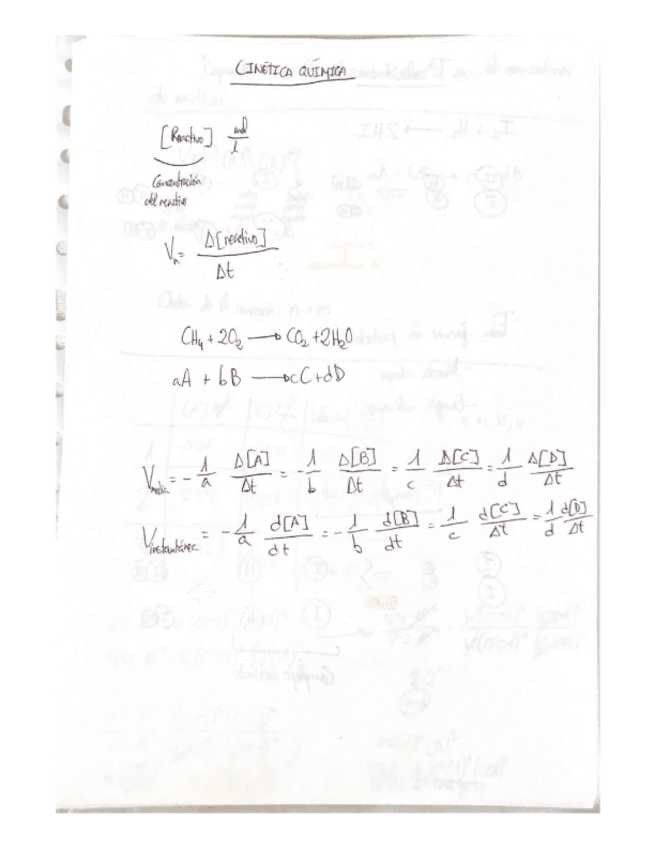 CINÉTICA QUÍMICA
[Reactivo] mol/l
Concentración
del reactivo
V = Δ[reactivo]/Δt
CH₄ + 2O₂ → CO₂ + 2H₂O
aA + bB → cC + dD
Vmedia = - 1/a Δ[A]/Δt = - 1/b Δ[B]/Δt = 1/c Δ[C]/Δt = 1/d Δ[D]/Δt
Vinstantánea = - 1/a d[A]/dt = - 1/b d[B]/dt = 1/c d[C]/Δt = 1/d d[D]/Δt